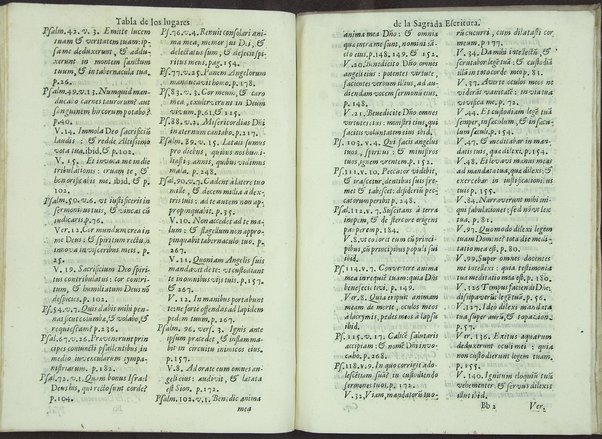 Tabla de los lugares
Psalm. 42. v. 3. Emitte lucem
tuam & veritatem tuam: ip-
sa me deduxerunt, & ad-
duxerunt in montem sanctum
tuum, & in tabernacula tua.
p. 26.
Psalm. 49. v. 13. Nunquid man-
ducabo carnes taurorum? aut
sanguinem hircorum potabo?
p. 40.
V. 14. Immola Deo sacrificiũ
laudis: & redde Altissimo
vota tua. ibid, & p. 101.
V. 15. Et invoca me in die
tribulationis: eruam te, &
honorificabis me. ibid, & p.
102.
Psalm. 50. v. 6. vt iustificeris in
sermonibus tuis, & vincas cũ
iudicaris. p. 76.
Ver. 12. Cor mundum crea in
me Deus: & spiritum rectum
innova in visceribus meis. p.
25.
V. 19. Sacrificium Deo spiri-
tus contribulatus: cor contri-
tum, & humiliatum Deus nõ
despicies. p. 102.
Psal. 54. v. 7. Quis dabit mihi pen-
nas sicut columbæ, & volabo, &
requiescam? p. 236.
Psal. 67. v. 26. Prævenerunt prin-
cipes coniuncti psallentibus in
medio iuvencularum tympa-
nistriarum. p. 182.
Psal. 72. v. 1. Quam bonus Israel
Deus, qui recto sunt corde?
p. 104.
Psal. 76. v. 4. Renuit consolari ani-
ma mea, memor fui Dei, &
delectatus sum, & defecit spi-
ritus meus. pag. 154.
Psf. 77. v. 25. Panem Angelorum
manducavit homo. p. 178.
Ps. 83. v. 3. Cor meum, & caro
mea, exultaverunt in Deum
vivum. p. 61, & 215.
Ps. 88. v. 2. Misericordias Dñi
in æternum cantabo. p. 217.
Psalm. 89. v. 15. Lætati sumus
pro diebus, quibus nos humi-
liasti; annis, quibus vidimus
mala. p. 248.
Psal. 90. v. 7. Cadent à latere tuo
mille, & decem millia à dex-
tris tuis: ad te autem non ap-
propinquabit. p. 35.
V. 10. Non accedet ad te ma-
lum: & flagellum non appro-
pinquabit tabernaculo tuo. p.
267.
V. 11. Quoniam Angelis suis
mandavit de te: vt custodiant
te in omnibus viis tuis. p. 157.
& 267.
V. 12. In manibus portabunt
te: ne forte offendas ad lapidem
pedem tuum. p. 267.
Psalm. 96. vers. 3. Ignis ante
ipsum præcedet, & inflamma-
bit in circuitu inimicos eius.
p. 157.
V. 8. Adorate eum omnes an-
geli eius: audivit, & lætata
est Sion. p. 192.
Psalm. 102. v. 1. Benedic anima
mea
de la Sagrada Escritura.
anima mea Dño: & omnia
quæ intra me sunt, nomini sã-
cto eius. p. 148, 149, & 151.
V. 20. Benedicite Dño omnes
angeli eius: potentes virtute,
facientes verbum illius, ad au-
diendam vocem sermonũ eius.
p. 148.
V. 21. Benedicite Dño omnes
virtutes eius: ministri eius, qui
facitis voluntatem eius. ibid.
Ps. 103. v. 4. Qui facis angelos
tuos, spiritus: & ministros
tuos, ignem vrentem. p. 152.
Ps. 111. v. 10. Peccator videbit,
& irascetur, dentibus suis fre-
met & tabescet: desiderium pec-
catorum peribit. p. 248.
Psal. 112. v. 7. Suscitans à terra
inopem, & de stercore erigens
pauperem. p. 184.
V. 8. vt collocet eum cũ princi-
pibus, cũ principibus populi sui.
ibid.
Ps. 114. v. 7. Convertere anima
mea in requiẽ tuam: quia Dñs
benefecit tibi. p. 149.
Ver. 8. Quia eripuit animam
meam de morte, oculos meos
à lacrymis, pedes meos à lapsu.
ibid.
Ps. 115. v. 17. Calicẽ salutaris
accipiam: & nomẽ Dñi invo-
cabo. p. 268.
Ps. 118. v. 9. In quo corrigit ado-
lescẽtior viam suam? in custodiẽdo
sermones tuos. p. 172.
V. 32. Viam, mandatorũ tuo-
rũ cucurri, cum dilatasti cor
meum. p. 177.
V. 34. Da mihi intellectũ, &
scrutabor legẽ tuã: & custo-
diã illã in toto corde meo p. 81.
V. 37. Averte oculos meos ne
videant vanitatem: in via tua
vivifica me. p. 72.
V. 44. Et custodiam legẽ tuã
semper, in sæculum, & in sæcu-
lum sæculi. p. 154.
V. 47. Et meditabar in man-
datis tuis, quæ dilexi. p. 155.
V. 48. Et levavi manus meas
ad mandata tua, quæ dilexi: &
exercebar in iustificationibus
tuis. p. 155.
V. 84. Narraverunt mihi ini-
qui fabulationes: sed nõ vt lex
tua. p. 80.
V. 97. Quomodo dilexi legem
tuam Domine? tota die medi-
tatio mea est. p. 80.
V. 99. Super omnes docentes
me intellexi: quia testimonia
tua meditatio mea est. p. 180.
V. 126. Tempus faciendi Dñe,
dissipaverũt legẽ tuã, p. 56.
V. 127. Ideo dilexi mandata
tua super aurũ, & topazion.
p. 57.
Ver. 136. Exitus aquarum
deduxerunt oculi mei: quia
non custodierunt legem tuam.
p. 83.
V. 140. Ignitum eloquiũ tuũ
vehementer: & servus dilexit
illud. ibid.
Bb 2
Ver.